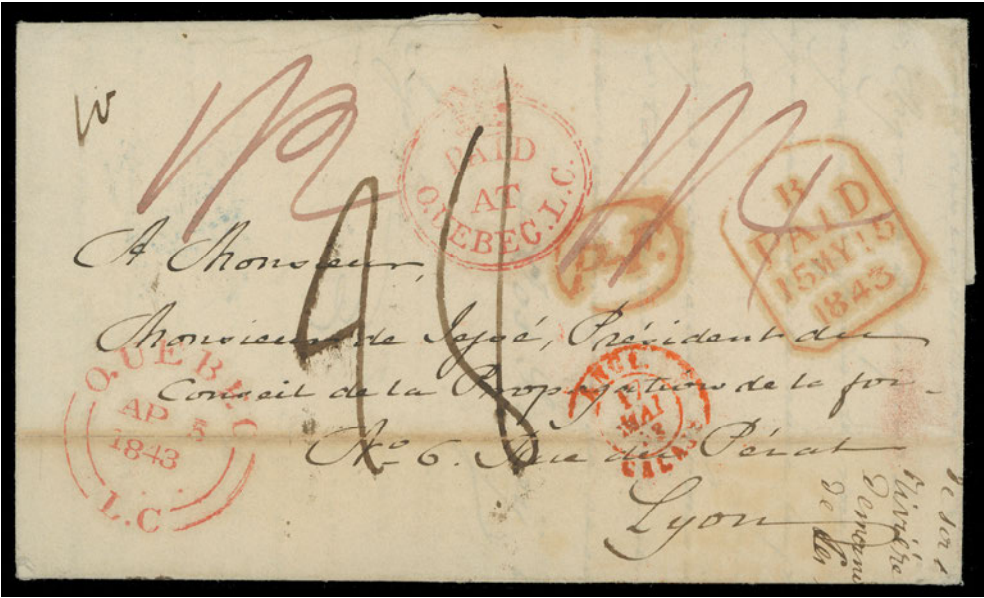 PAID
AT
QUEBEC.L.C.
P.F.
PAID
15MY15
1843
A Monsieur,
Monsieur de Jessé, Président du
Conseil de la Propagation de la foi
No 6. Rue du Pérat
Lyon
QUEBEC
AP 5
1843
L.C
ANGL.
17
MAI
43
CALAIS
Rivière
de